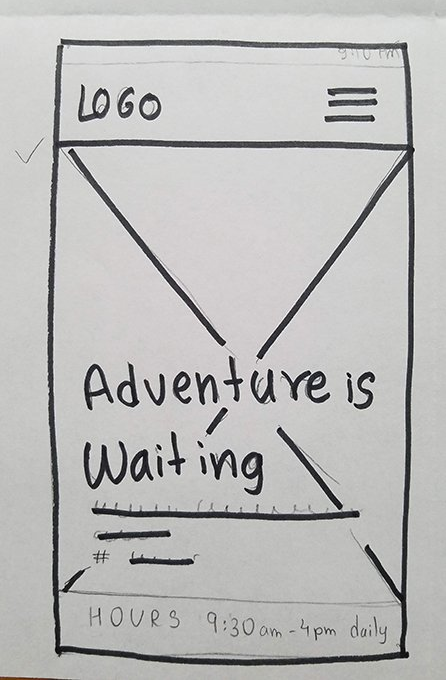 LOGO
Adventure is
Waiting
#
HOURS 9:30am-4pm daily